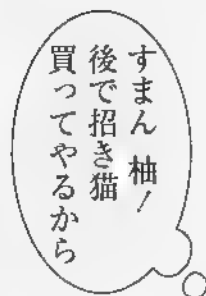 すまん 柚!
後で招き猫
買ってやるから